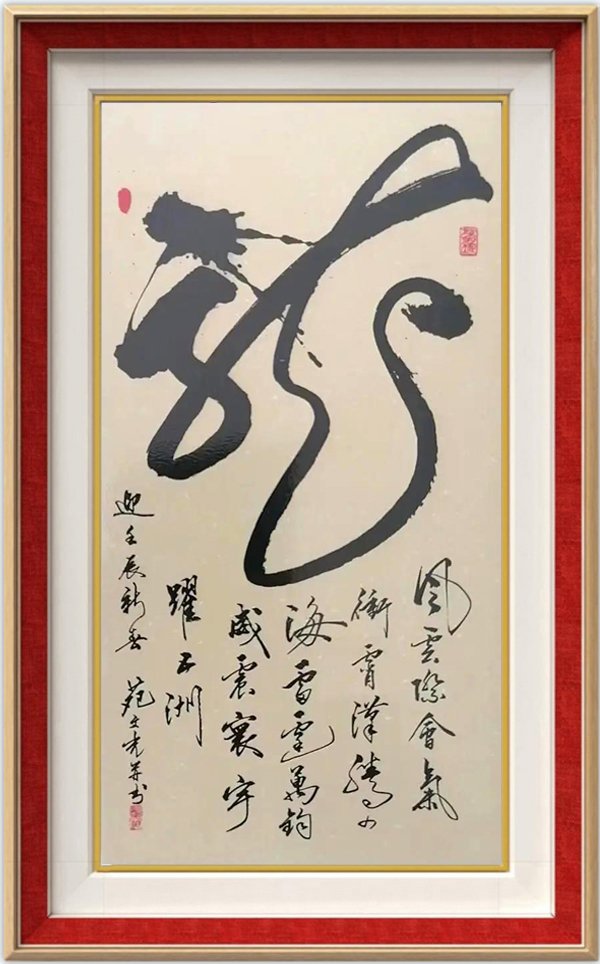 龍
风雲際會氣
衝霄漢騰四
海雷霆萬鈞
威震寰宇
躍五洲
迎壬辰新春 苑文光并书